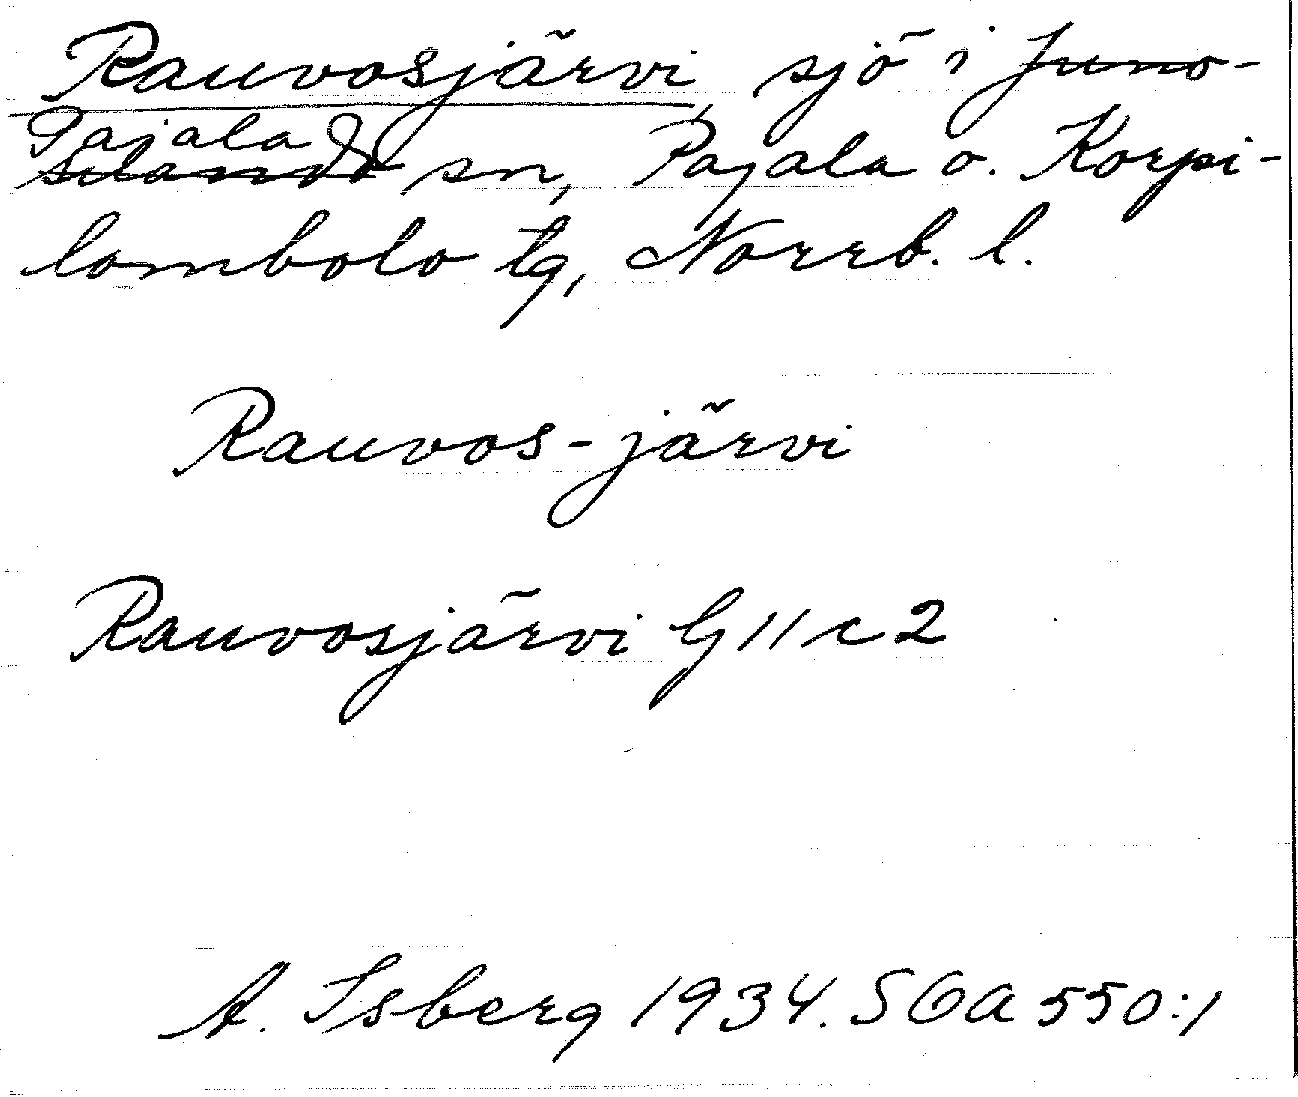 Rauvosjärvi, sjö i Juno-
Pajala
suando sn, Pajala o. Korpi-
lombolo tg, Norrb. l.
Rauvos-järvi
Rauvosjärvi G 11 c 2
A. Isberg 1934. SOA 550:1